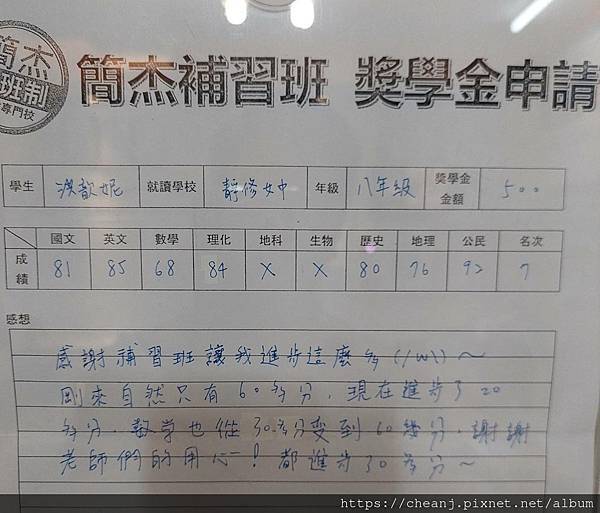 簡杰
班制
專門校
簡杰補習班 獎學金申請
學生 洪歆妮 就讀學校 靜修女中 年級 八年級 獎學金金額 500
國文 英文 數學 理化 地科 生物 歷史 地理 公民 名次
成績 81 85 68 84 X X 80 76 92 7
感想
感謝補習班讓我進步這麼多(/ω\)~
剛來自然只有60多分,現在進步了20
多分,數学也從30多分变到60幾分,謝謝
老師們的用心!都進步30多分~
https://cheanj.pixnet.net/album